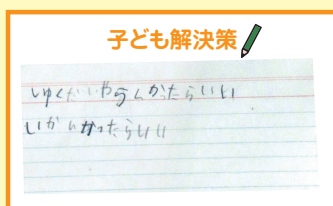 子ども解決策
しゅくだいやらんかったらいい
いかんかったらいい